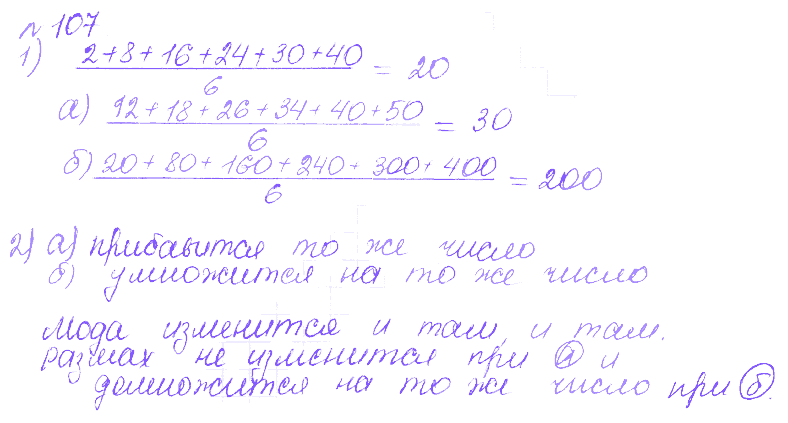 № 107
1) 2+8+16+24+30+40 / 6 = 20
а) 12+18+26+34+40+50 / 6 = 30
б) 20+80+160+240+300+400 / 6 = 200
2) а) прибавится то же число
б) умножится на то же число
Мода изменится и там, и там.
размах не изменится при а и
домножится на то же число при б.